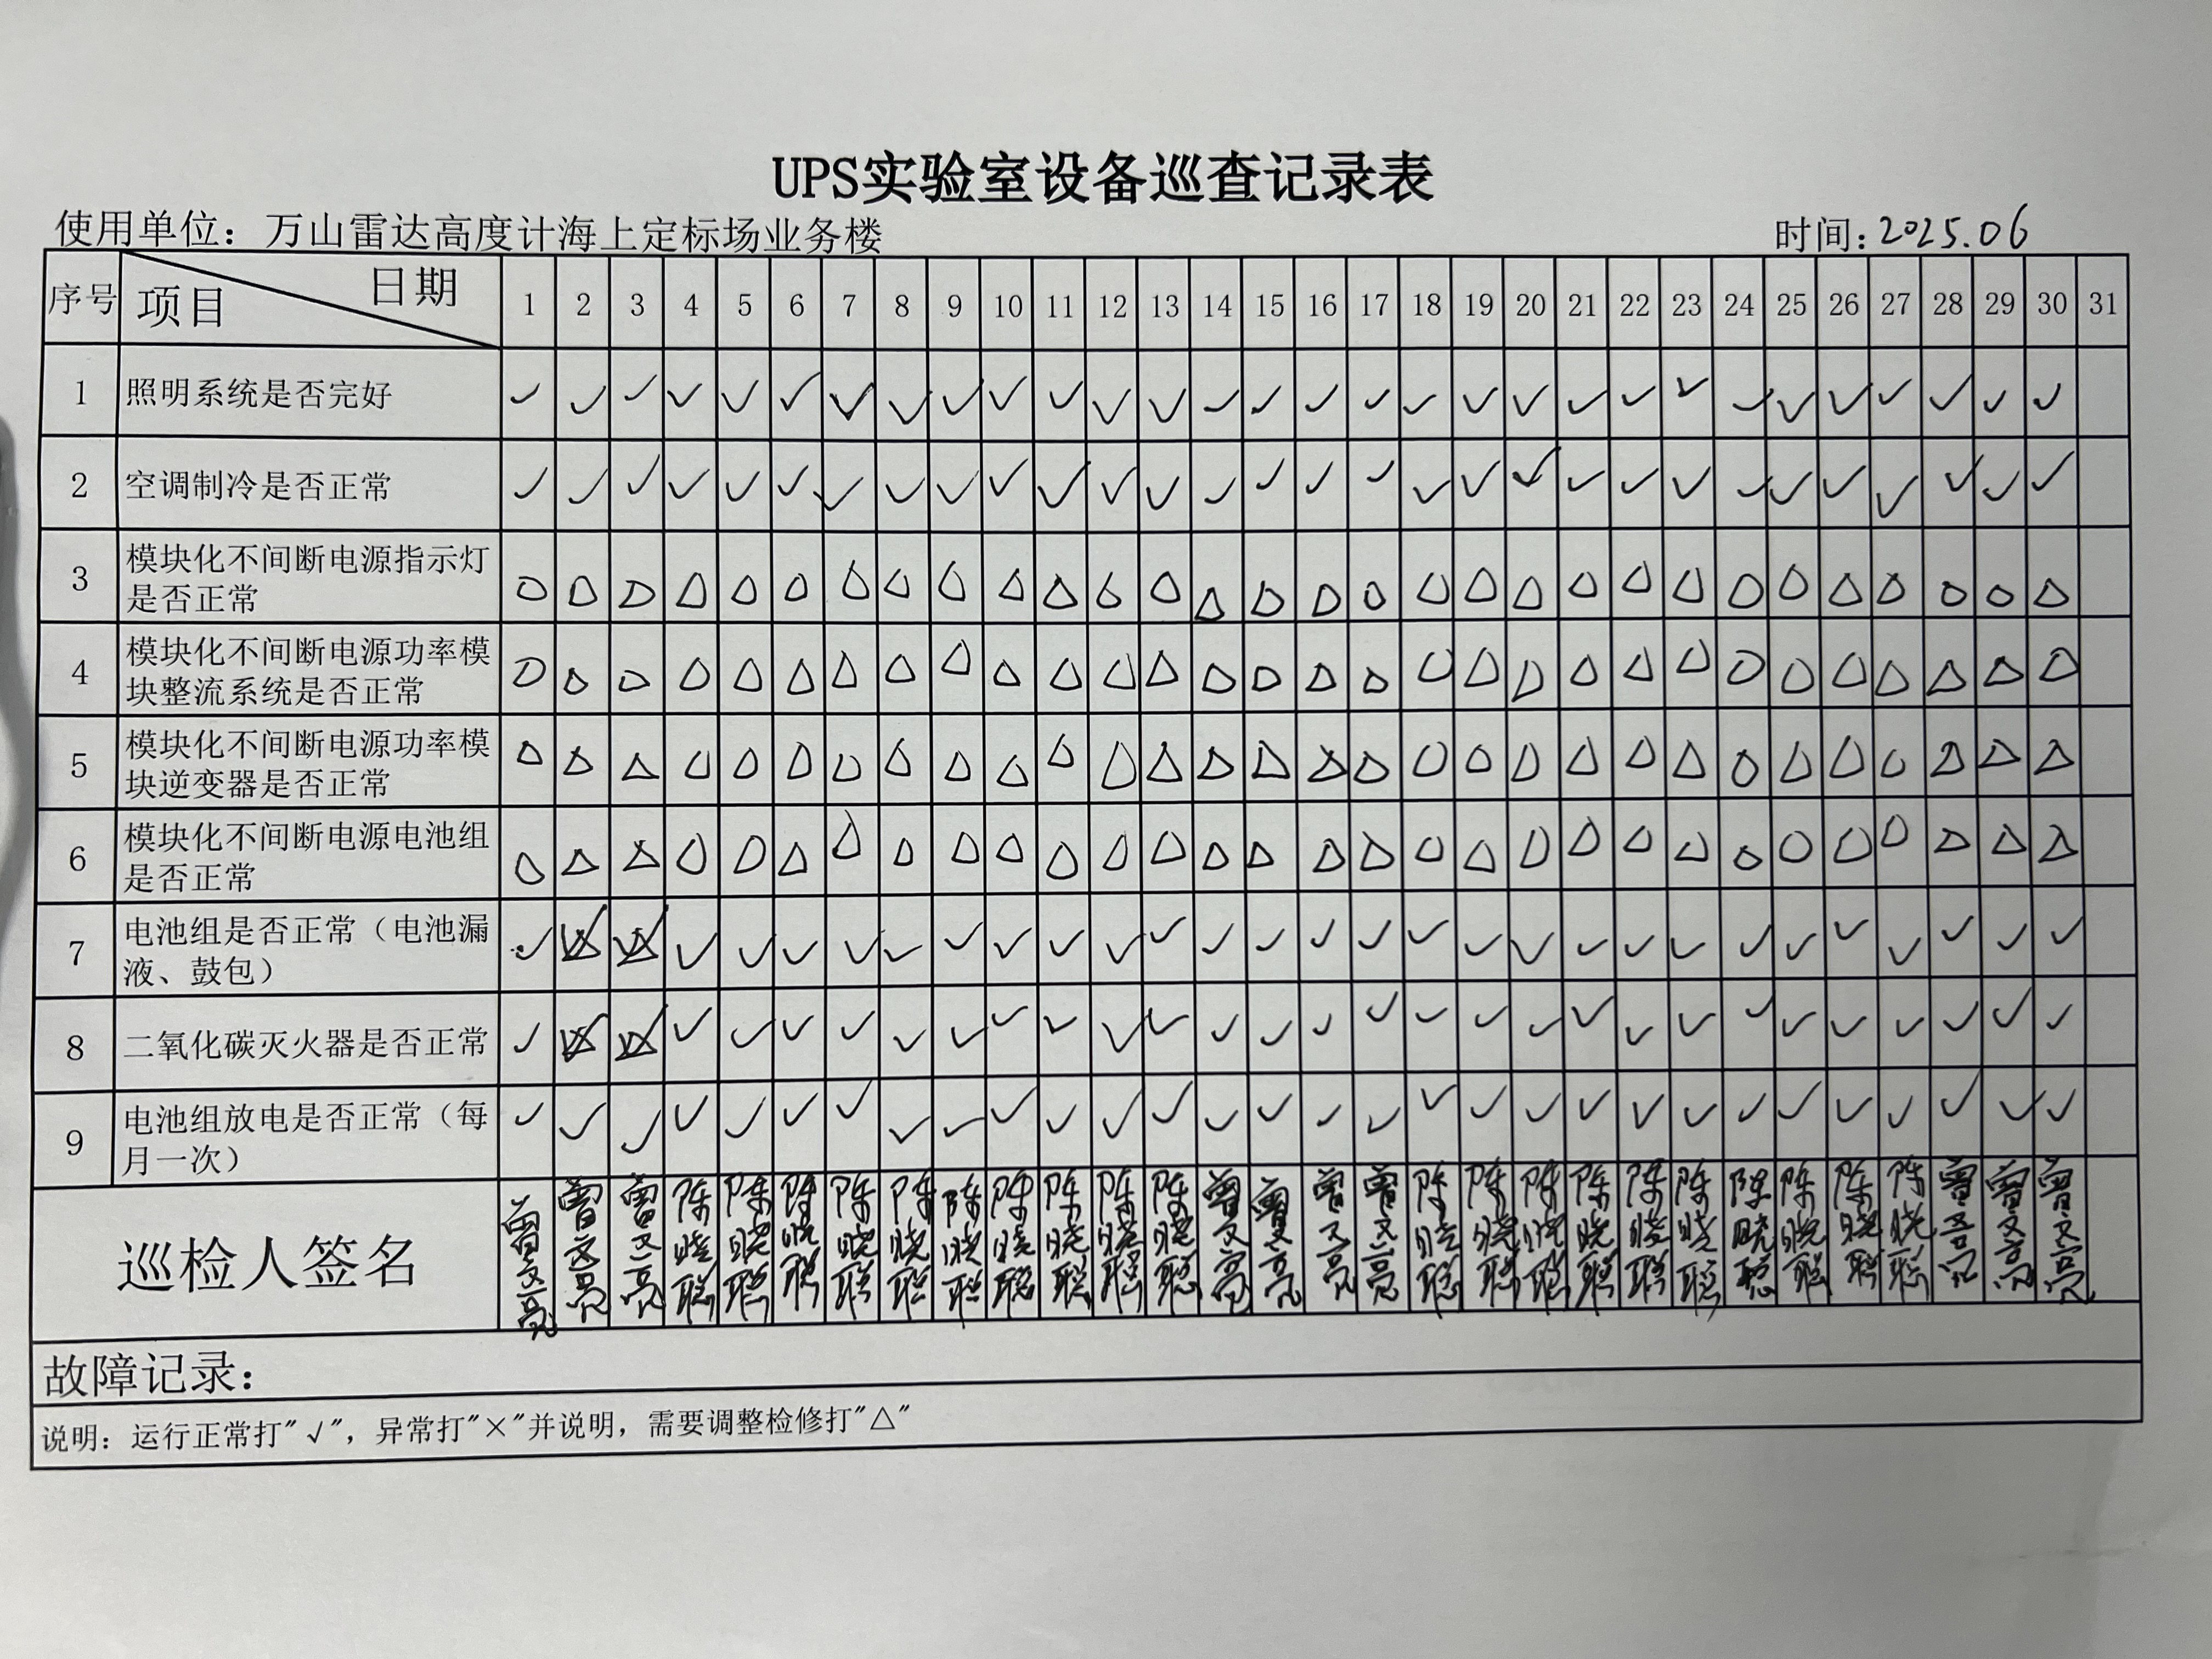 UPS实验室设备巡查记录表
使用单位：万山雷达高度计海上定标场业务楼 时间：2025.06
序号 项目 日期 1 2 3 4 5 6 7 8 9 10 11 12 13 14 15 16 17 18 19 20 21 22 23 24 25 26 27 28 29 30 31
1 照明系统是否完好 ✓ ✓ ✓ ✓ ✓ ✓ ✓ ✓ ✓ ✓ ✓ ✓ ✓ ✓ ✓ ✓ ✓ ✓ ✓ ✓ ✓ ✓ ✓ ✓ ✓ ✓ ✓ ✓ ✓ ✓
2 空调制冷是否正常 ✓ ✓ ✓ ✓ ✓ ✓ ✓ ✓ ✓ ✓ ✓ ✓ ✓ ✓ ✓ ✓ ✓ ✓ ✓ ✓ ✓ ✓ ✓ ✓ ✓ ✓ ✓ ✓ ✓ ✓
3 模块化不间断电源指示灯
是否正常 △ △ △ △ △ △ △ △ △ △ △ △ △ △ △ △ △ △ △ △ △ △ △ △ △ △ △ △ △ △
4 模块化不间断电源功率模
块整流系统是否正常 △ △ △ △ △ △ △ △ △ △ △ △ △ △ △ △ △ △ △ △ △ △ △ △ △ △ △ △ △ △
5 模块化不间断电源功率模
块逆变器是否正常 △ △ △ △ △ △ △ △ △ △ △ △ △ △ △ △ △ △ △ △ △ △ △ △ △ △ △ △ △ △
6 模块化不间断电源电池组
是否正常 △ △ △ △ △ △ △ △ △ △ △ △ △ △ △ △ △ △ △ △ △ △ △ △ △ △ △ △ △ △
7 电池组是否正常（电池漏
液、鼓包） ✓ ✓ ✓ ✓ ✓ ✓ ✓ ✓ ✓ ✓ ✓ ✓ ✓ ✓ ✓ ✓ ✓ ✓ ✓ ✓ ✓ ✓ ✓ ✓ ✓ ✓ ✓ ✓ ✓ ✓
8 二氧化碳灭火器是否正常 ✓ ✓ ✓ ✓ ✓ ✓ ✓ ✓ ✓ ✓ ✓ ✓ ✓ ✓ ✓ ✓ ✓ ✓ ✓ ✓ ✓ ✓ ✓ ✓ ✓ ✓ ✓ ✓ ✓ ✓
9 电池组放电是否正常（每
月一次） ✓ ✓ ✓ ✓ ✓ ✓ ✓ ✓ ✓ ✓ ✓ ✓ ✓ ✓ ✓ ✓ ✓ ✓ ✓ ✓ ✓ ✓ ✓ ✓ ✓ ✓ ✓ ✓ ✓ ✓
巡检人签名 曾文亮 曾文亮 曾文亮 陈晓聪 陈晓聪 陈晓聪 陈晓聪 陈晓聪 陈晓聪 陈晓聪 陈晓聪 陈晓聪 陈晓聪 曾文亮 曾文亮 曾文亮 曾文亮 陈晓聪 陈晓聪 陈晓聪 陈晓聪 陈晓聪 陈晓聪 陈晓聪 陈晓聪 陈晓聪 陈晓聪 曾文亮 曾文亮 曾文亮
故障记录：
说明：运行正常打"√"，异常打"×"并说明，需要调整检修打"△"